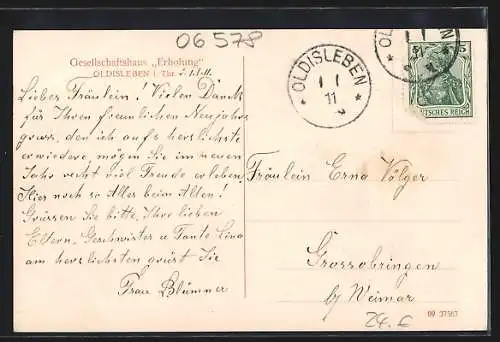 06578
Gesellschaftshaus „Erholung"
OLDISLEBEN i. Thr. d. 1.1.11.
Lieber Fräulein! Vielen Dank
für Ihren freundlichen Neujahrs
gruss, den ich aufs herzlichste
erwiedere, mögen Sie im neuen
Jahr recht viel Freude erleben.
Hier noch so Alles beim Alten!
Grüssen Sie bitte, Ihre lieben
Eltern, Geschwister u Tante Lina
am herzlichsten grüst Sie
Frau Blümner
OLDISLEBEN
1 1
11
5 5
DEUTSCHES REICH
Fräulein Erna Völger
Grossobringen
by Weimar
09 37567
24.-€